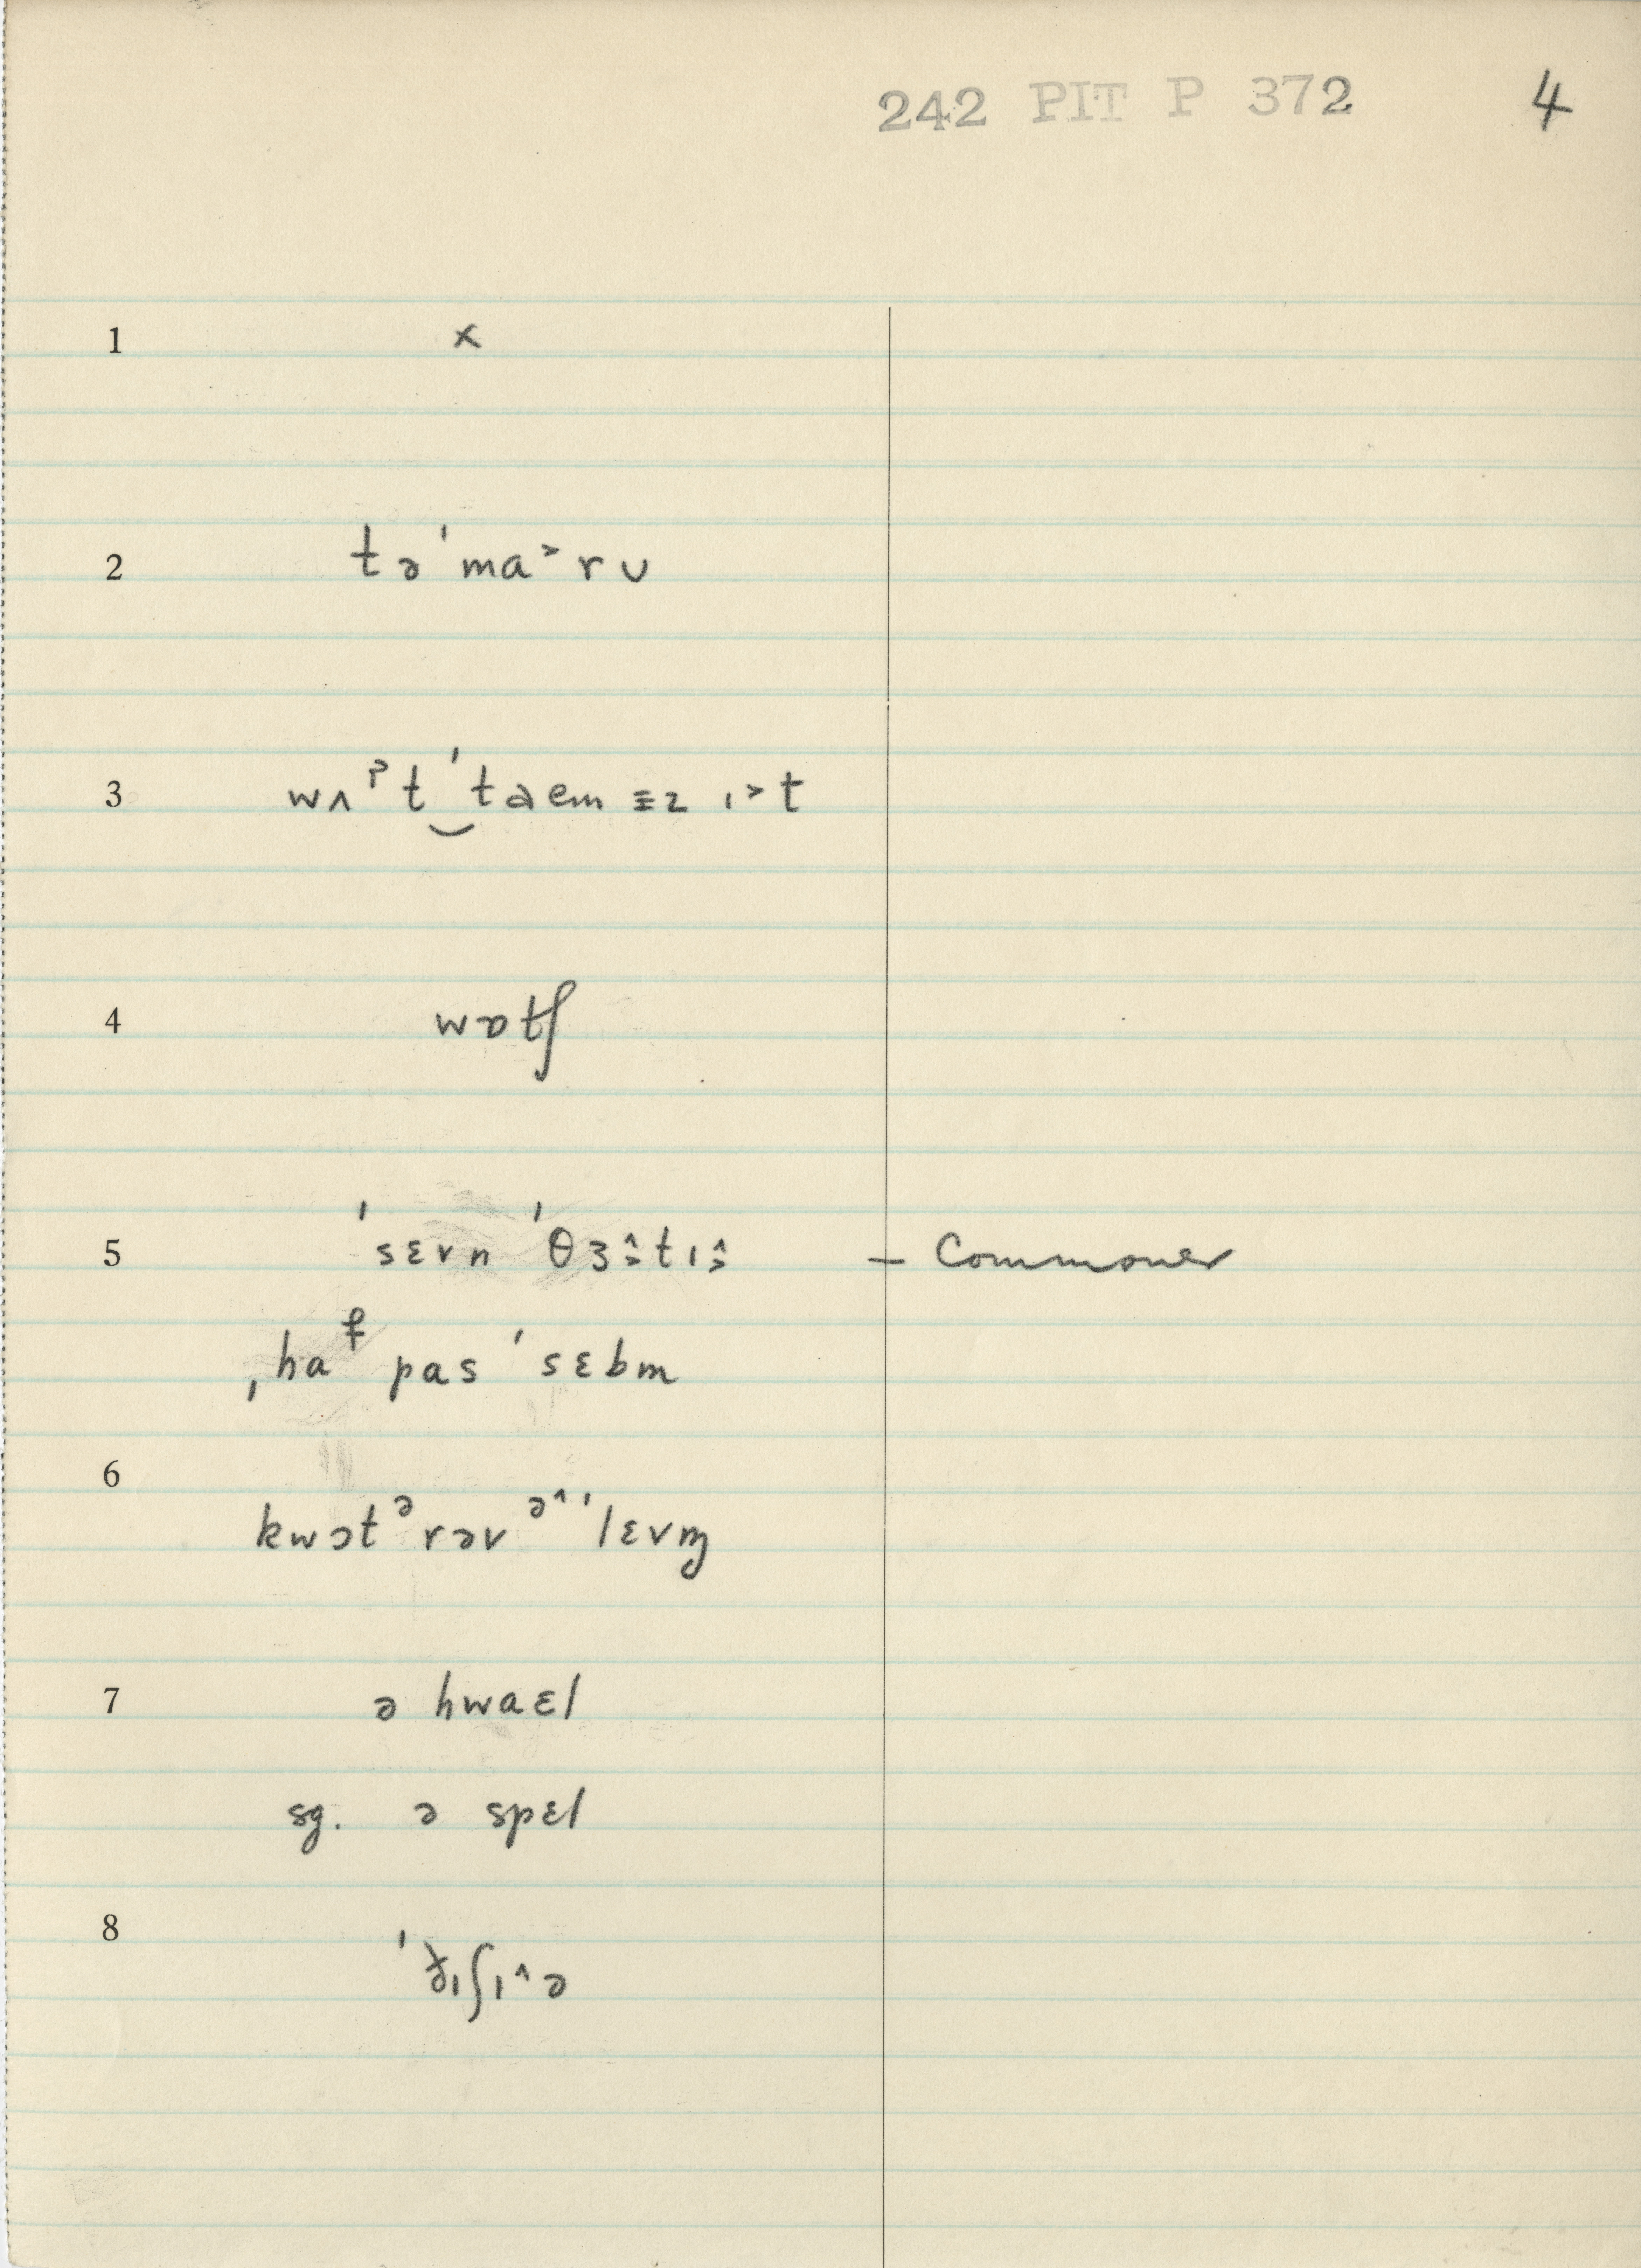 242 PIT P 372 4
1 x
2 tə ˈma˃rʊ
3 wʌˀt‿ˈtaem ɪz ɪ˃t
4 wɒtʃ
5 ˈsɛvn ˈθɜ̂tɪ̂ – Commoner
ˌhaf pas ˈsɛbm
6
kwɔtᵊrəv ᵊ^ˈlɛvɱ
7 ə hwaɛl
sg. ə spɛl
8
ˈfɪʃɪ^ə